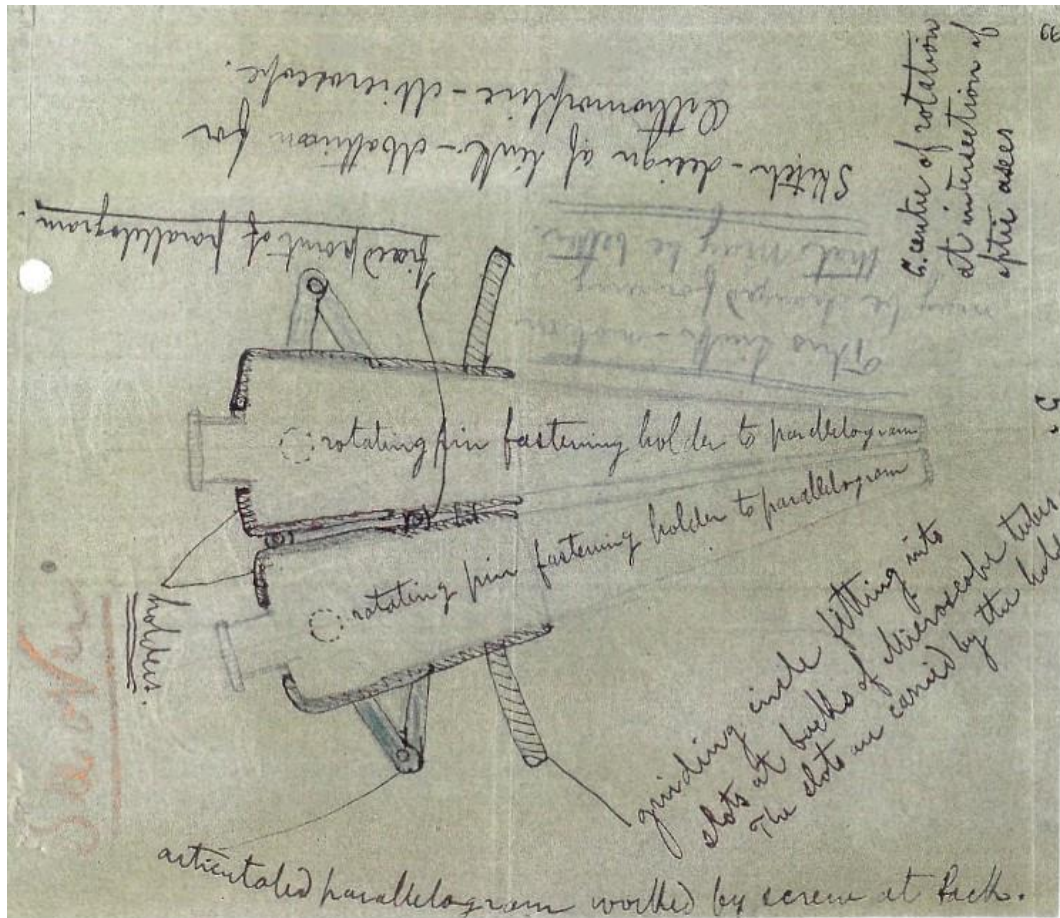 Sketch-design of link-motion for
Orthomorphic-Microscope.
fixed point of parallelogram.
This link-motion
may be changed for any
that may be better.
C. centre of rotation
at intersection of
optic axes
C.
rotating pin fastening holder to parallelogram
rotating pin fastening holder to parallelogram
holders.
guiding circle fitting into
slots at backs of Microscope tubes
The slots are carried by the hold
articulated parallelogram worked by screw at back.